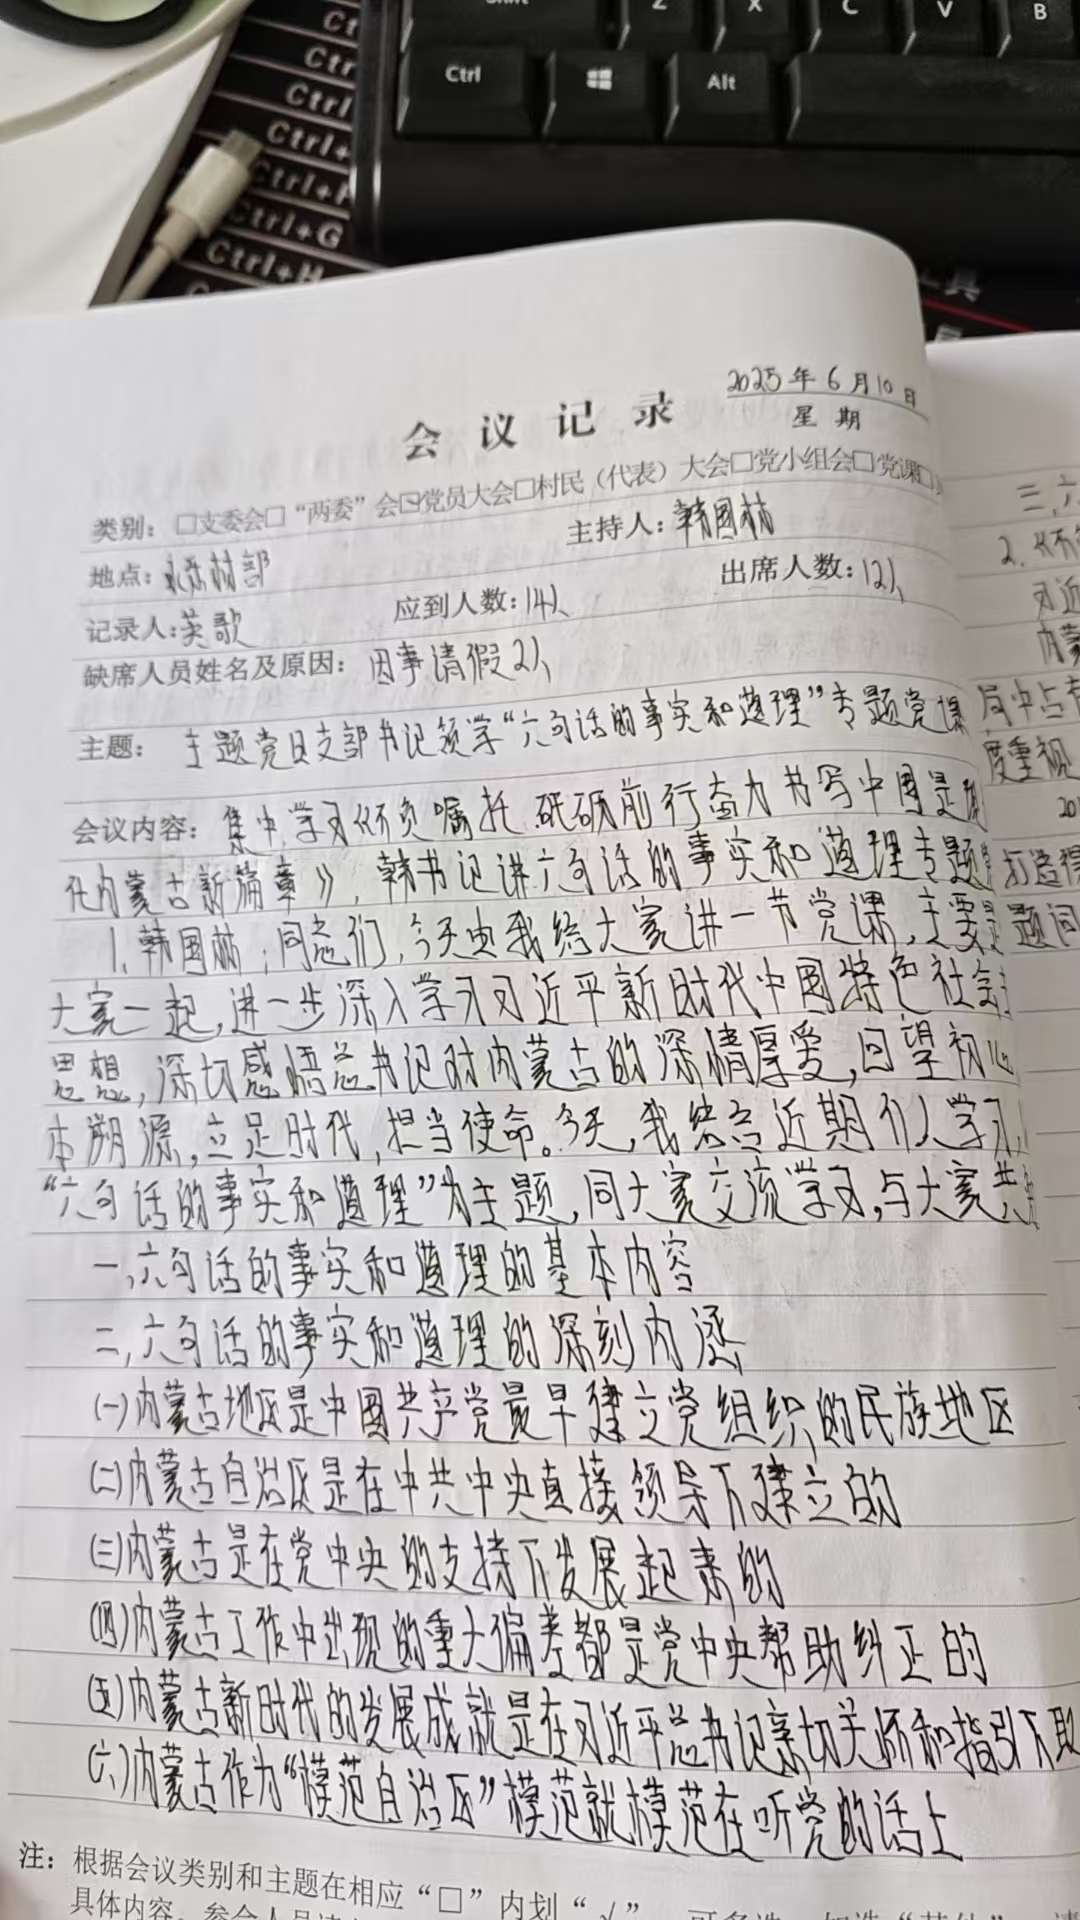 Shift Z X C V B
Ctrl Alt
Ctrl
Ctrl
Ctrl
Ctrl+
Ctrl+
Ctrl+G
Ctrl+H
具
2025年6月10日
会议记录
星期
类别：□支委会□“两委”会☑党员大会□村民（代表）大会□党小组会□党课□
地点：村部 主持人：韩国林
记录人：英歌 应到人数：14人 出席人数：12人
缺席人员姓名及原因：因事请假2人
主题：主题党日支部书记领学“六句话的事实和道理”专题党课
会议内容：集中学习《不负嘱托 砥砺前行奋力书写中国
化内蒙古新篇章》，韩书记讲六句话的事实和道理专题
1、韩国林：同志们，今天由我给大家讲一节党课，主要是
大家一起，进一步深入学习习近平新时代中国特色社会
思想，深切感悟总书记对内蒙古的深情厚爱，回望初心
本溯源，立足时代，担当使命。今天，我结合近期个人学习，
“六句话的事实和道理”为主题，同大家交流学习，与大家共
一、六句话的事实和道理的基本内容
二、六句话的事实和道理的深刻内涵
(一)内蒙古地区是中国共产党最早建立党组织的民族地区
(二)内蒙古自治区是在中共中央直接领导下建立的
(三)内蒙古是在党中央的支持下发展起来的
(四)内蒙古工作中出现的重大偏差都是党中央帮助纠正的
(五)内蒙古新时代的发展成就是在习近平总书记亲切关怀和指引下取
(六)内蒙古作为“模范自治区”模范就模范在听党的话上
注：根据会议类别和主题在相应“□”内划“√”
具体内容
三、六
2、
习近
内蒙
度重视
20
打造
题词